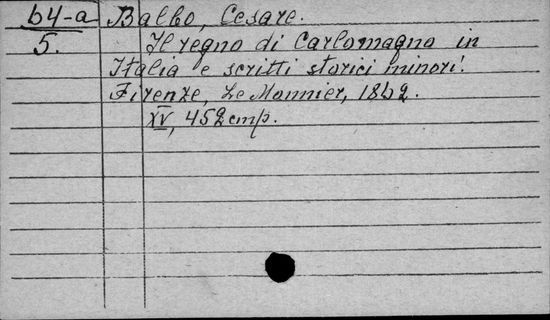 64-а Balbo, Cesare.
5. Il regno di Carlomagno in
Italia e scritti storici minori.
Firenze, Le Monnier, 1862.
XV, 452 cmp.